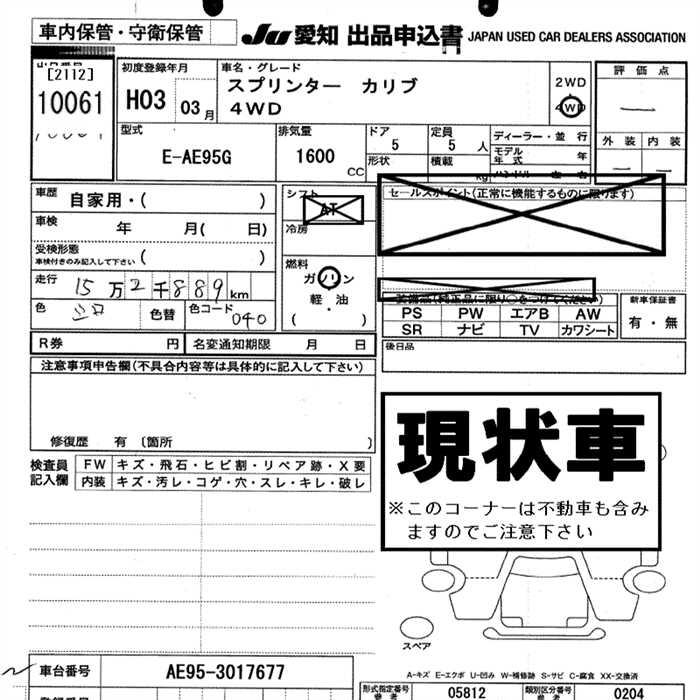 車内保管・守衛保管
JU 愛知 出品申込書 JAPAN USED CAR DEALERS ASSOCIATION
出品番号
[2112]
10061
初度登録年月
H03 03月
車名・グレード
スプリンター カリブ
4WD
2WD
4WD
評価点
外装 内装
型式
E-AE95G
排気量
1600
CC
ドア
5
定員
5 人
形状
積載
kg
ディーラー・並行
モデル年式 年
ハンドル 左・右
車歴 自家用・( )
車検 年 月( 日)
受検形態
車検付きのみ記入して下さい ( )
走行 15万2千889km
色 シロ 色替 色コード 040
シフト
AT
冷房
燃料
ガソリン
軽・油
( )
セールスポイント(正常に機能するものに限ります)
装備品(純正品に限り○をつけてください)
PS PW エアB AW
SR ナビ TV カワシート
新車保証書
有・無
R券 円 名変通知期限 月 日
後日品
注意事項申告欄(不具合内容等は具体的に記入して下さい)
修復歴 有 〔箇所 〕
検査員記入欄
FW キズ・飛石・ヒビ割・リペア跡・X要
内装 キズ・汚レ・コゲ・穴・スレ・キレ・破レ
現状車
※このコーナーは不動車も含み
ますのでご注意下さい
スペア
A-キズ E-エクボ U-凹み W-補修跡 S-サビ C-腐食 XX-交換済
車台番号 AE95-3017677
形式指定番号
参考
05812
類別区分番号
参考
0204
登録番号